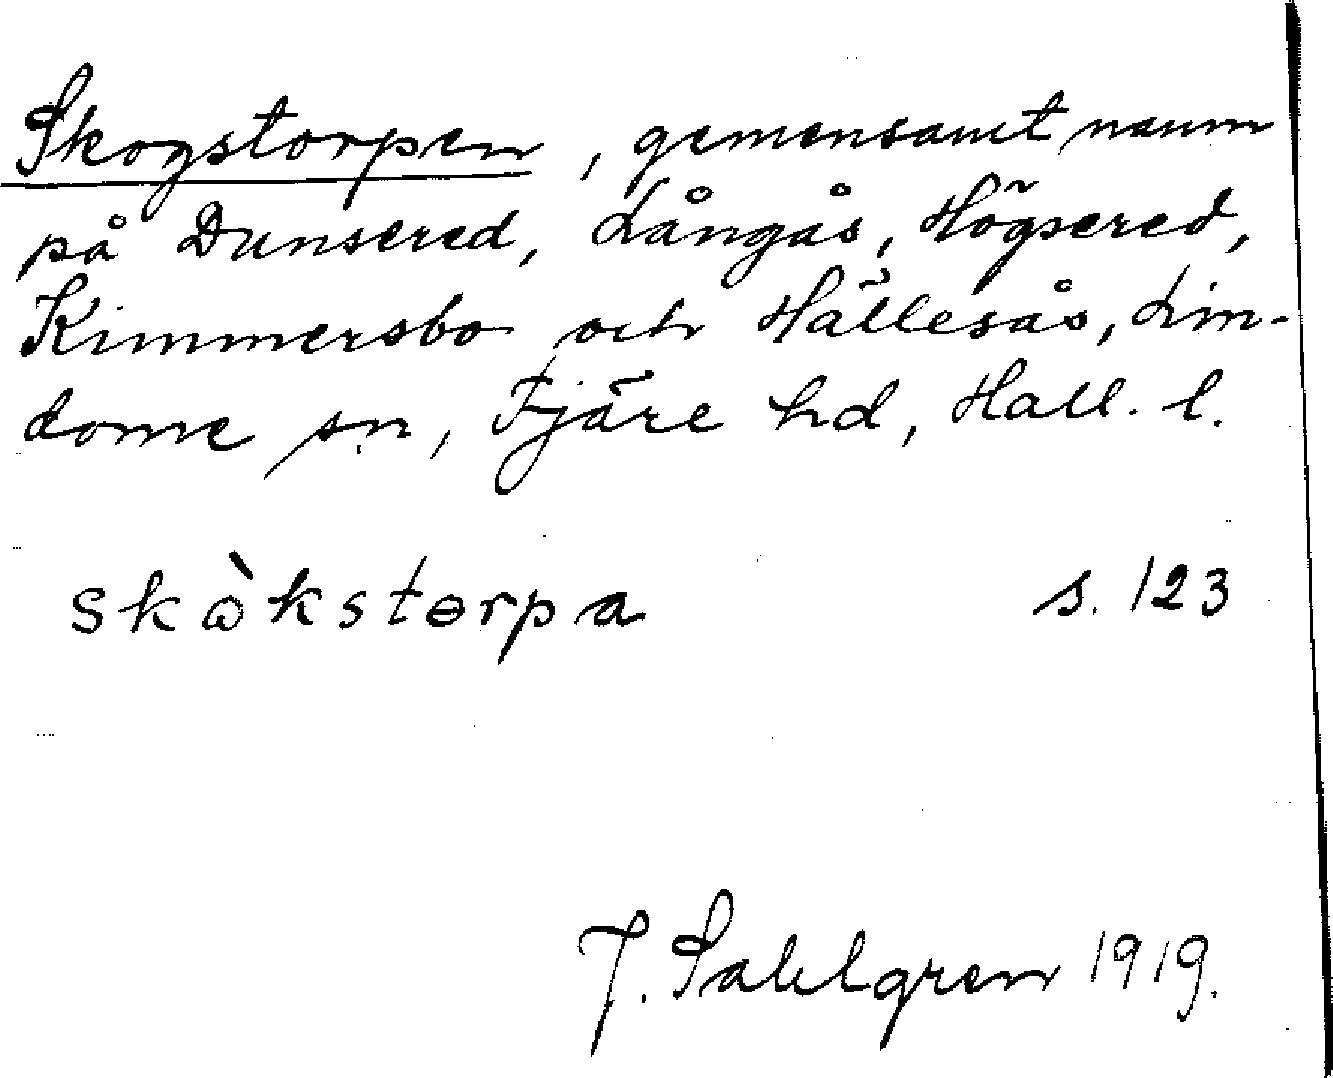 Skogstorpen, gemensamt namn
på Dunsered, Långås, Högsered,
Kimmersbo och Hällesås, Lin-
dome sn, Fjäre hd, Hall. l.
skὼkstɵrpa s. 123
J. Sahlgren 1919.